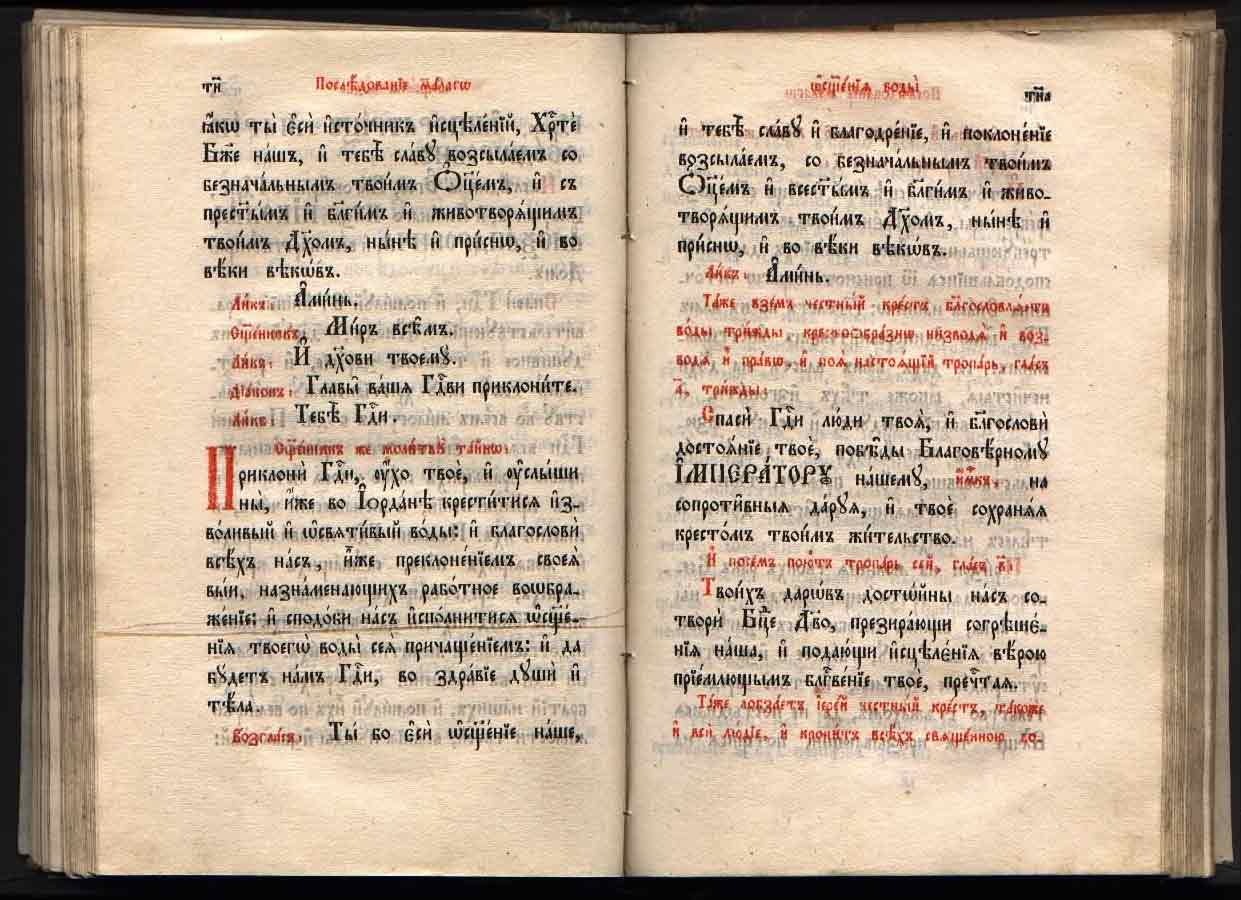 ти҃
Послѣ́дованїе ма́лагѡ
ꙗ҆́кѡ ты̀ є҆сѝ и҆сто́чникъ и҆сцѣле́нїй, Хрⷭ҇тѐ
Бж҃е на́шъ, и҆ тебѣ̀ сла́вꙋ возсыла́емъ со
безнача́льнымъ твои́мъ Ѻ҆ц҃е́мъ, и҆ съ
прест҃ы́мъ и҆ бл҃ги́мъ и҆ животворѧ́щимъ
твои́мъ Дх҃омъ, ны́нѣ и҆ при́снѡ, и҆ во
вѣ́ки вѣкѡ́въ.
Ли́къ: А҆ми́нь.
Сщ҃е́нникъ: Ми́ръ всѣ̑мъ.
Ли́къ: И҆ дх҃ови твоемꙋ̀.
Дїа́конъ: Главы̑ ва́шѧ Гдⷭ҇ви приклони́те.
Ли́къ: Тебѣ̀ Гдⷭ҇и.
Сщ҃е́нникъ же моли́твꙋ та́йнѡ:
Приклонѝ Гдⷭ҇и, ᲂу҆́хо твоѐ, и҆ ᲂу҆слы́ши
ны̀, и҆́же во І҆ѻрда́нѣ крести́тисѧ и҆з-
во́ливый и҆ ѡ҆свѧти́вый во́ды: и҆ благословѝ
всѣ́хъ на́съ, и҆̀же преклоне́нїемъ своеѧ̀
вы́и, назна́менающихъ рабо́тное воѡбра-
же́нїе: и҆ сподо́би на́съ и҆спо́лнитисѧ ѡ҆сщ҃е́-
нїѧ твоегѡ̀ воды̀ сеѧ̀ причаще́нїемъ: и҆ да
бꙋ́детъ на́мъ Гдⷭ҇и, во здра́вїе дꙋшѝ и҆
тѣ́ла.
Во́згласъ: Ты́ бо є҆сѝ ѡ҆сщ҃е́нїе на́ше,
ѡ҆сщ҃е́нїѧ воды̀
ти҃а
и҆ тебѣ̀ сла́вꙋ и҆ благодре́нїе, и҆ поклоне́нїе
возсыла́емъ, со безнача́льнымъ твои́мъ
Ѻ҆ц҃е́мъ и҆ всест҃ы́мъ и҆ бл҃ги́мъ и҆ живо-
творѧ́щимъ твои́мъ Дх҃омъ, ны́нѣ и҆
при́снѡ, и҆ во вѣ́ки вѣкѡ́въ.
Ли́къ: А҆ми́нь.
Та́же взе́мъ честны́й кре́стъ благословлѧ́ети
во́ды три́жды, крⷭ҇тоѡбра́знѡ низводѧ̀ и҆ воз-
водѧ̀ и҆ пра́вѡ, и҆ поѧ̀ настоѧ́щїй тропа́рь, гла́съ
а҃, три́жды:
Спасѝ Гдⷭ҇и лю́ди твоѧ̑, и҆ благословѝ
достоѧ́нїе твоѐ, побѣ̑ды Благовѣ́рномꙋ
И҆МПЕРА́ТОРꙊ на́шемꙋ, и҆́мкъ, на
сопроти̑вныѧ да́рꙋѧ, и҆ твоѐ сохранѧ́ѧ
кресто́мъ твои́мъ жи́тельство.
И҆ посе́мъ пою́тъ тропа́рь се́й, гла́съ в҃:
Твои́хъ даро́въ досто́йны на́съ со-
творѝ Бцⷣе Дв҃о, презира́ющи согрѣше́-
нїѧ на́ша, и҆ подаю́щи и҆сцѣле́нїѧ вѣ́рою
прїе́млющымъ бл҃гве́нїе твоѐ, пречⷭ҇таѧ.
Та́же лобза́етъ і҆ере́й честны́й кре́стъ, та́коже
и҆ всѝ лю́дїе, и҆ кропи́тъ всѣ́хъ свѧще́нною во-